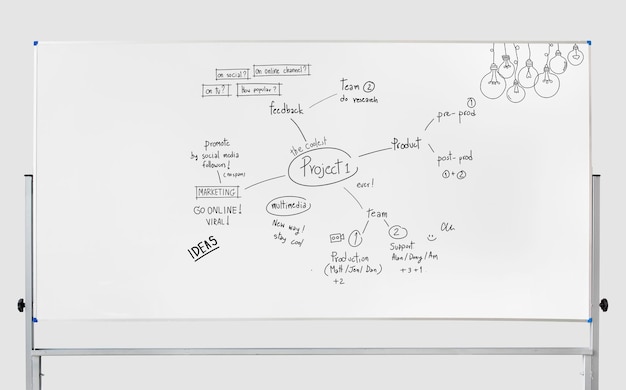 on social?
on online channel?
on tv?
How popular?
feedback
Team ②
do research
the coolest
Project 1
ever!
Product
①
pre-prod
post-prod
① + ②
promote
by social media
followers!
MARKETING
GO ONLINE!
VIRAL!
IDEAS
multimedia
New way!
stay cool
team
①
Production
(Matt/Jon/Dan)
+2
②
Support
Alan/Doug/Am
+3+1